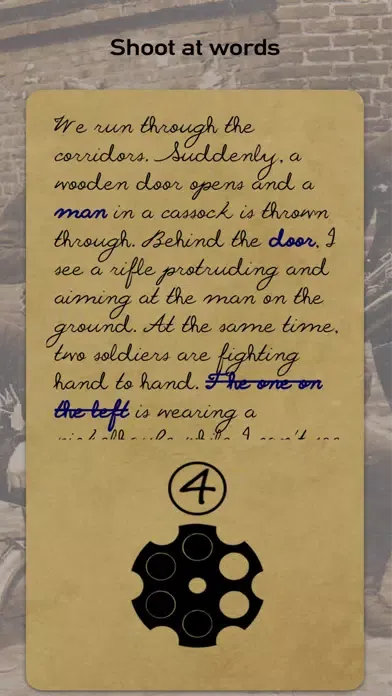 Shoot at words
We run through the
corridors. Suddenly, a
wooden door opens and a
man in a cassock is thrown
through. Behind the door, I
see a rifle protruding and
aiming at the man on the
ground. At the same time,
two soldiers are fighting
hand to hand. The one on
the left is wearing a
4